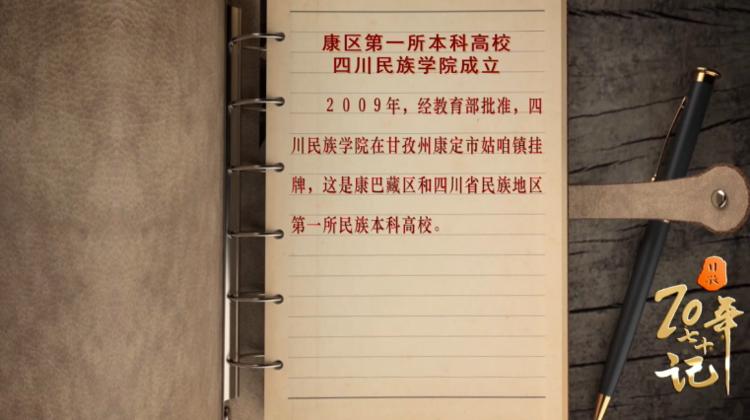 康区第一所本科高校
四川民族学院成立
２００９年，经教育部批准，四
川民族学院在甘孜州康定市姑咱镇挂
牌，这是康巴藏区和四川省民族地区
第一所民族本科高校。
甘孜
70年
七十
记